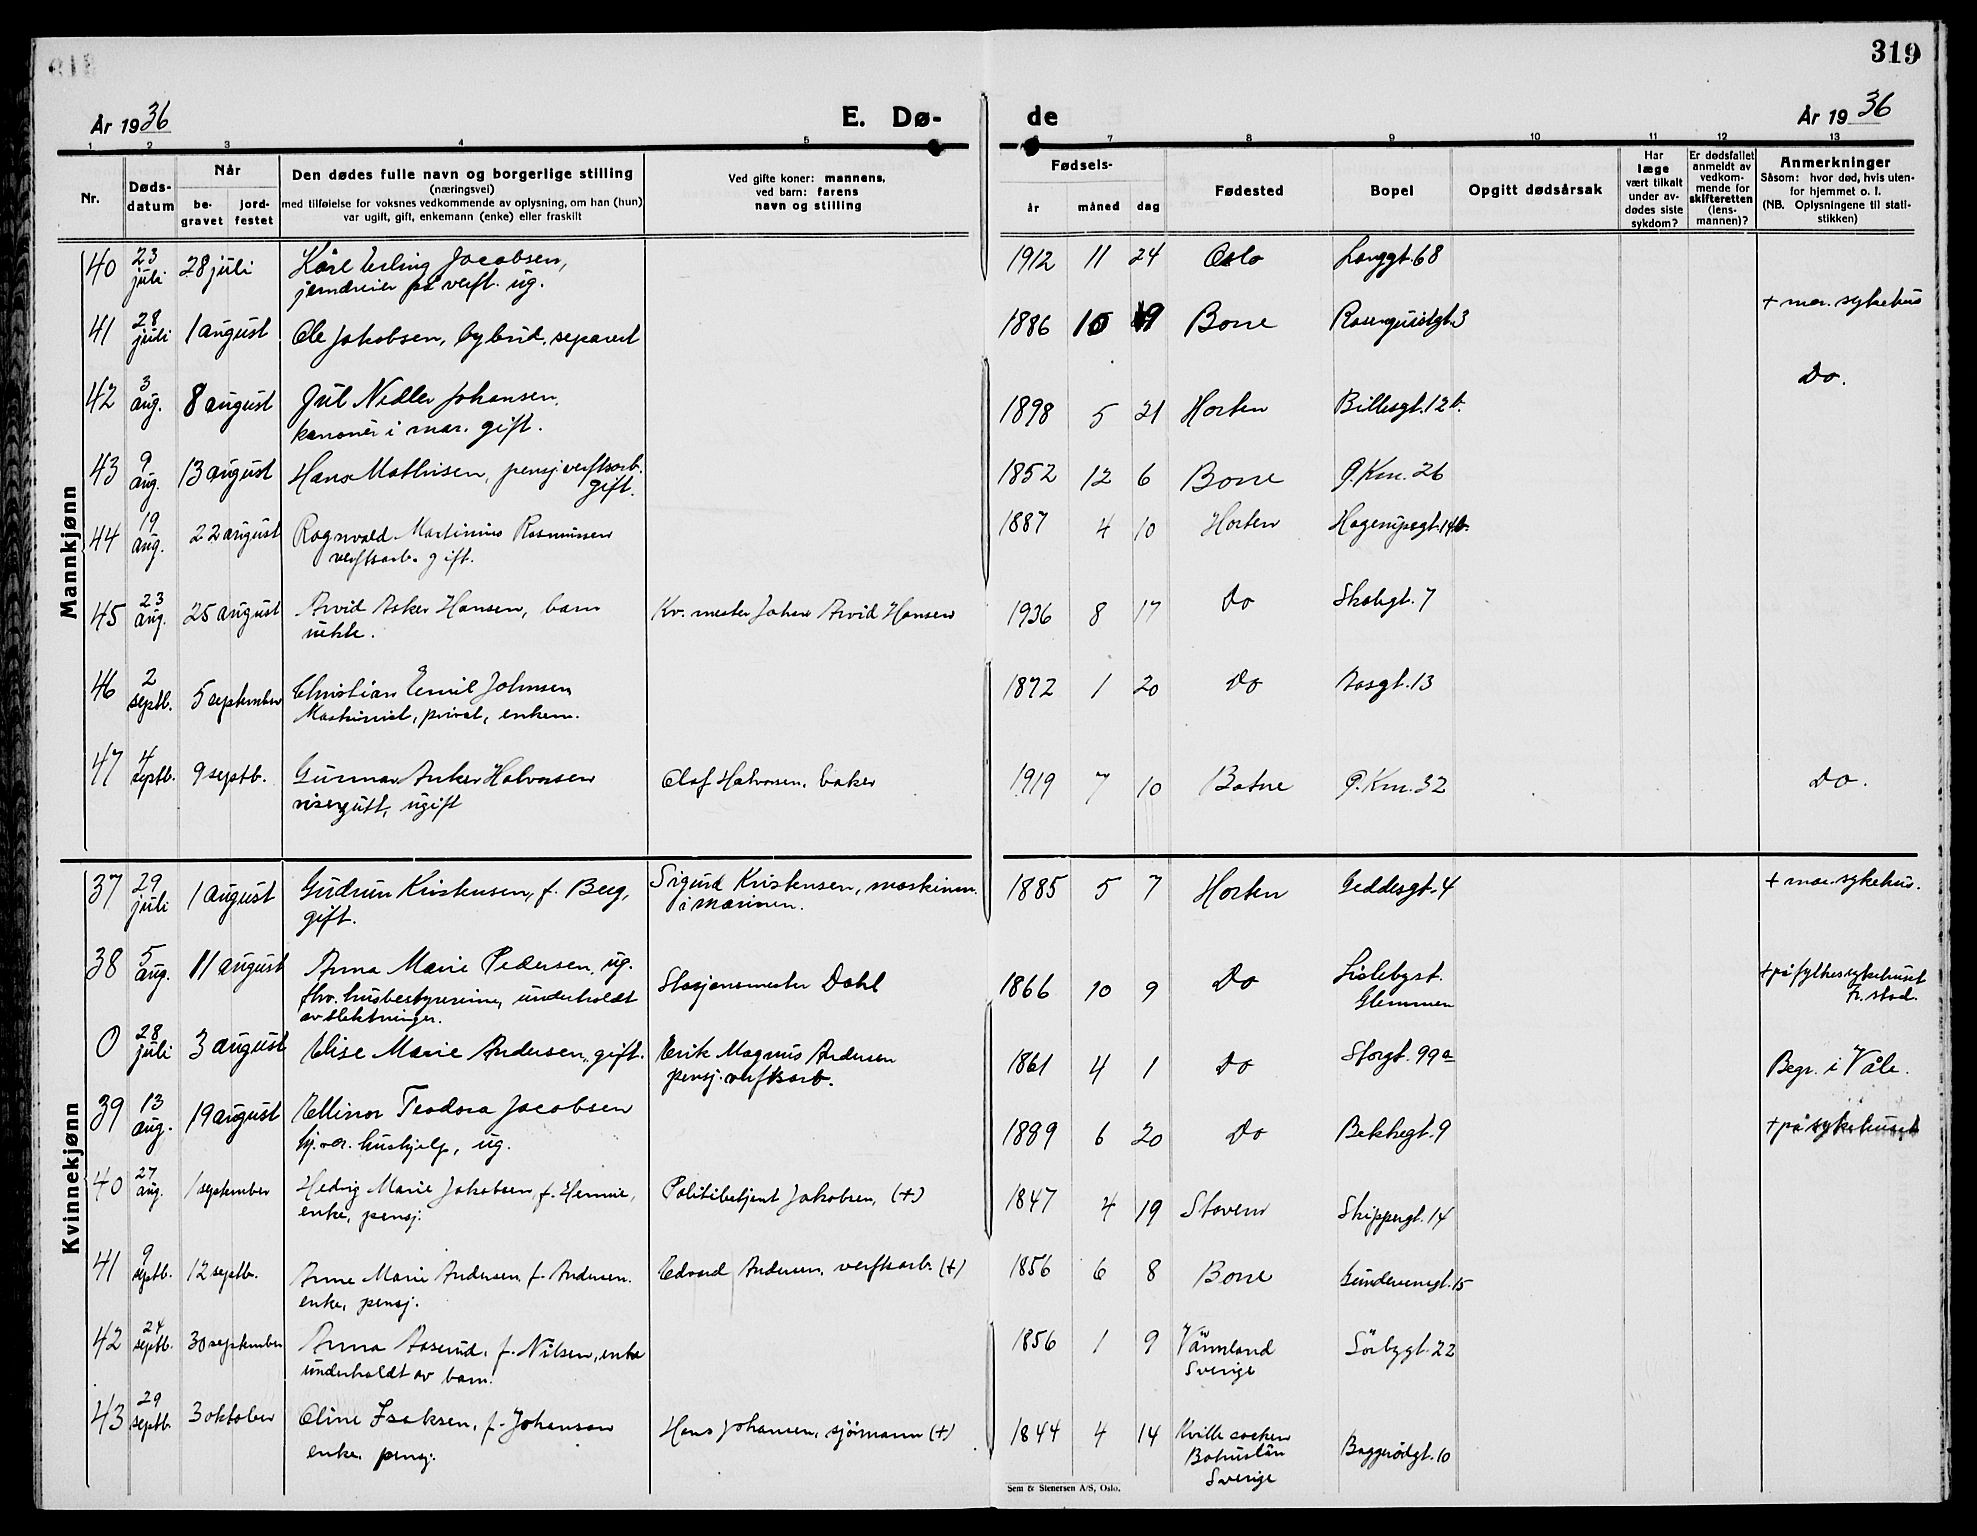 319
År 1936
E. Dø-
de
År 1936
1 2 3 4 5 6 7 8 9 10 11 12 13
Nr.
Døds-
datum
Når
be-
gravet
jord-
festet
Den dødes fulle navn og borgerlige stilling
(næringsvei)
med tilføielse for voksnes vedkommende av oplysning, om han (hun)
var ugift, gift, enkemann (enke) eller fraskilt
Ved gifte koner: mannens,
ved barn: farens
navn og stilling
Fødsels-
år måned dag
Fødested
Bopel
Opgitt dødsårsak
Har
læge
vært tilkalt
under av-
dødes siste
sykdom?
Er dødsfallet
anmeldt av
vedkom-
mende for
skifteretten
(lens-
mannen)?
Anmerkninger
Såsom: hvor død, hvis uten-
for hjemmet o. l.
(NB. Oplysningene til stati-
stikken)
Mannkjønn
40 23 juli 28 juli Kåre Erling Jacobsen, 1912 11 24 Oslo Langgt. 68
jerndreier på verft. ug.
+ mar. sykehus
41 28 juli 1 august Ole Jakobsen, bybud, separert 1886 10 9 Borre Rosenquistgt. 3
Do.
42 3 aug. 8 august Jul Nedler Johansen, 1898 5 21 Horten Billesgt. 12 b.
kanonér i mar. gift.
43 9 aug. 13 august Hans Mathisen, pensj. verftsarb. 1852 12 6 Borre Ø. Km. 26
gift.
44 19 aug. 22 august Ragnvald Martinius Rasmussen 1887 4 10 Horten 14b.
verftsarb. gift.
45 23 aug. 25 august Arvid Asker Hansen, barn Kv. mester Johan Arvid Hansen 1936 8 17 Do Skolegt. 7
uekte.
46 2 septb. 5 september Christian Emil Johnsen 1872 1 20 Do Aasgt. 13
Maskinist, privat, enkem.
47 4 septb. 9 septb. Gunnar Anker Halvorsen Olaf Halvorsen, baker 1919 7 10 Botne Ø. Km. 32 Do.
visergutt, ugift
Kvinnekjønn
37 29 juli 1 august Gudrun Kristensen, f. Berg, Sigurd Kristensen, maskinm. 1885 5 7 Horten Geddesgt. 4 + mar. sykehus.
gift. i marinen.
38 5 aug. 11 august Anna Marie Pedersen, ug. Stasjonsmester Dahl 1866 10 9 Do Lislebyst. + på fylkessykehuset
fhv. husbestyrerinne, underholdt Glemmen Fr.stad.
av slektninger.
0 28 juli 3 august Elise Marie Andersen, gift. Erik Magnus Andersen 1861 4 1 Do Storgt. 99a Begr. i Våle.
pensj. verftsarb.
39 13 aug. 19 august Ellinor Teodora Jacobsen 1889 6 20 Do Bekkegt. 9 + på sykehuset
hushjelp, ug.
40 27 aug. 1 september Hedvig Marie Jakobsen, f. Politibetjent Jakobsen, (+) 1847 4 19 Stavern Skippergt. 14
enke, pensj.
41 9 septb. 12 septb. Anne Marie Andersen f. Andersen. Edvard Andersen, verftsarb. (+) 1856 6 8 Borre Gundersensgt. 15
enke, pensj.
42 24 septb. 30 september Anna Aaserud, f. Nilsen, enke 1856 1 9 Värmland Sörbygt. 22
underholdt av barn. Sverige
43 29 septb. 3 oktober Oline Isaksen, f. Johanson Hans Johansen, sjömann (+) 1844 4 14 Kville socken Baggerødgt. 10
enke, pensj. Bohuslän
Sverige
Sem & Stenersen A/S, Oslo.